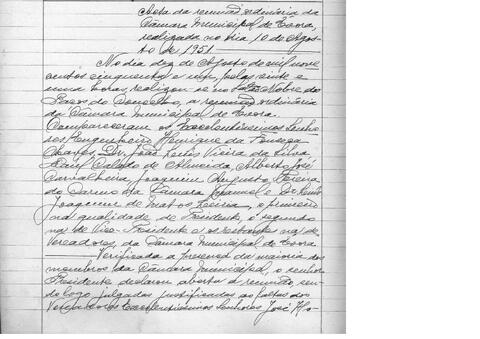 Acta da reunião ordinária da
Câmara Municipal de Évora,
realizada no dia 10 de Agos-
to de 1951
No dia dez de Agosto de mil nove
centos cinquenta e um, pelas vinte e
uma horas, realizou-se no Nobre do
Paços do Concelho, a reunião ordinária
da Câmara Municipal de Évora.
Compareceram os Excelentíssimos Senho-
res Engenheiro Henrique da Fonseca
Chaves, Dr. João Luís Vieira da Silva
José de Almeida, Alberto José
Joaquim Augusto
do Carmo da Câmara Manuel e Dr.
Joaquim de Matos, o primeiro
na qualidade de Presidente, o segundo
na de Vice-Presidente e os restantes na de
Vereadores, da Câmara Municipal de Évora
Verificada a presença da maioria dos
membros da Câmara Municipal, o senhor
Presidente declarou aberta a reunião, sen-
do logo julgadas justificadas as faltas dos
Vereadores Excelentíssimos Senhores José